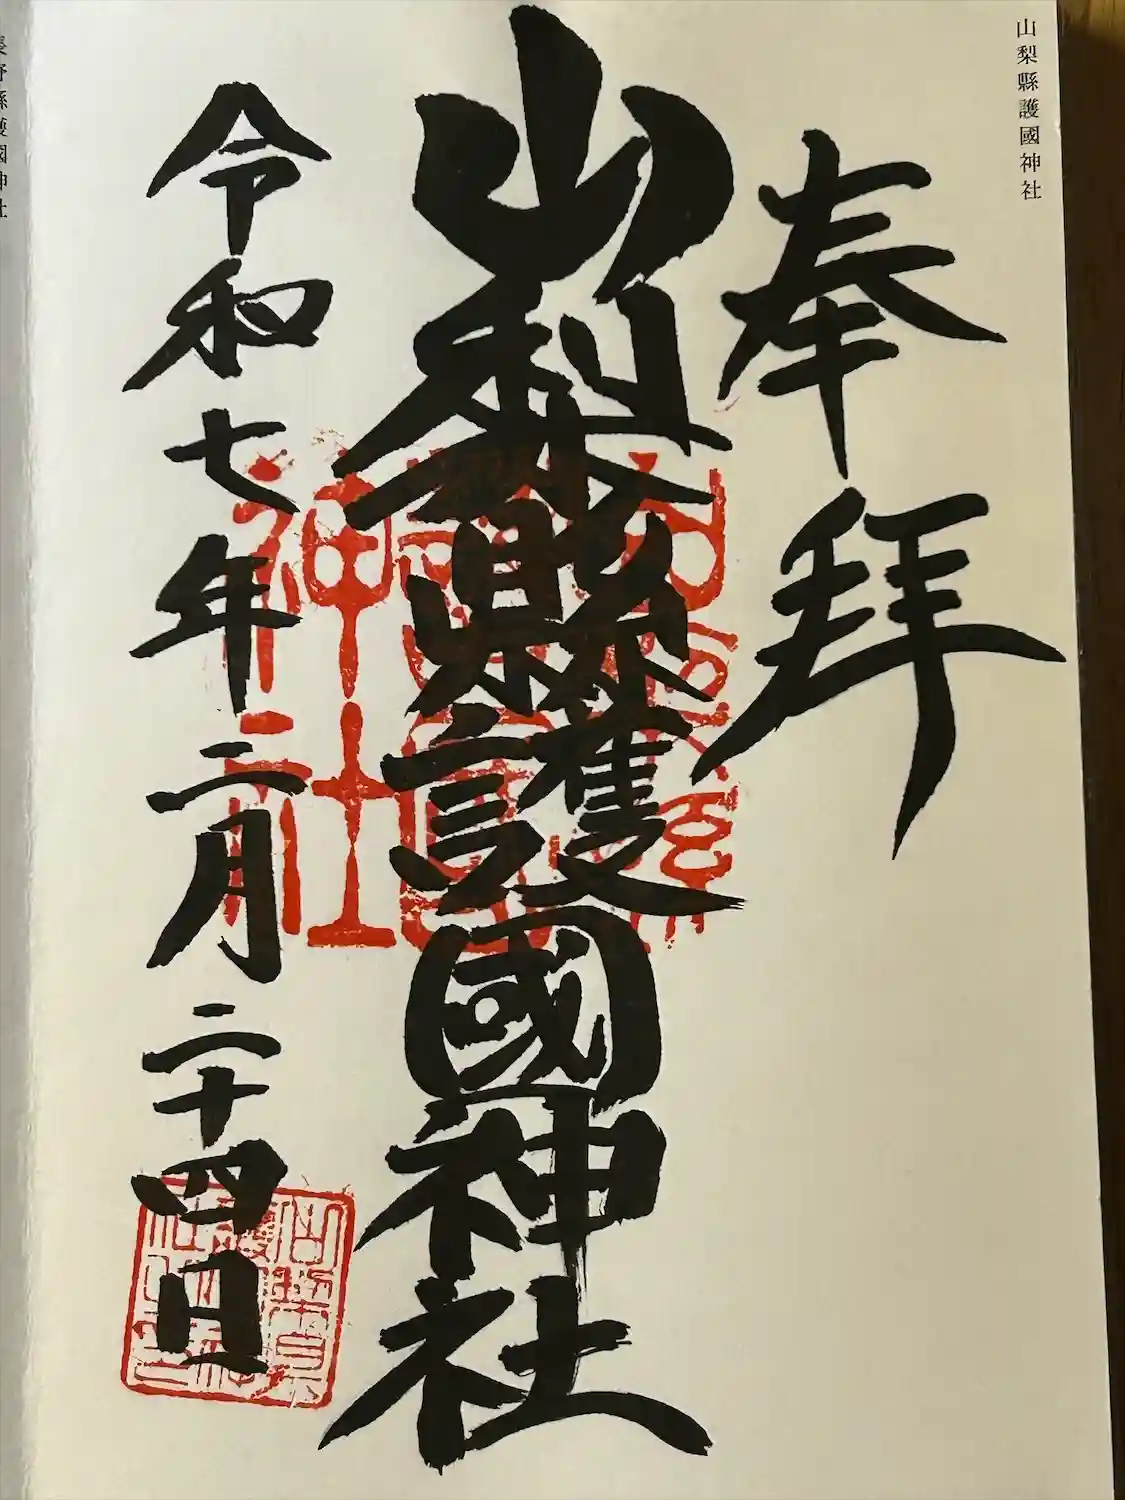 山梨縣護國神社
奉拝
山梨縣護國神社
令和七年二月二十四日
長野縣護國神社